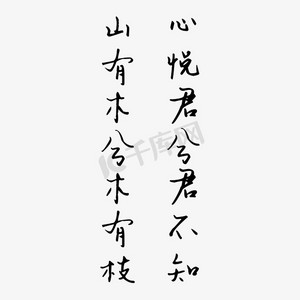 心悦君兮君不知
山有木兮木有枝
千库网
588ku.com